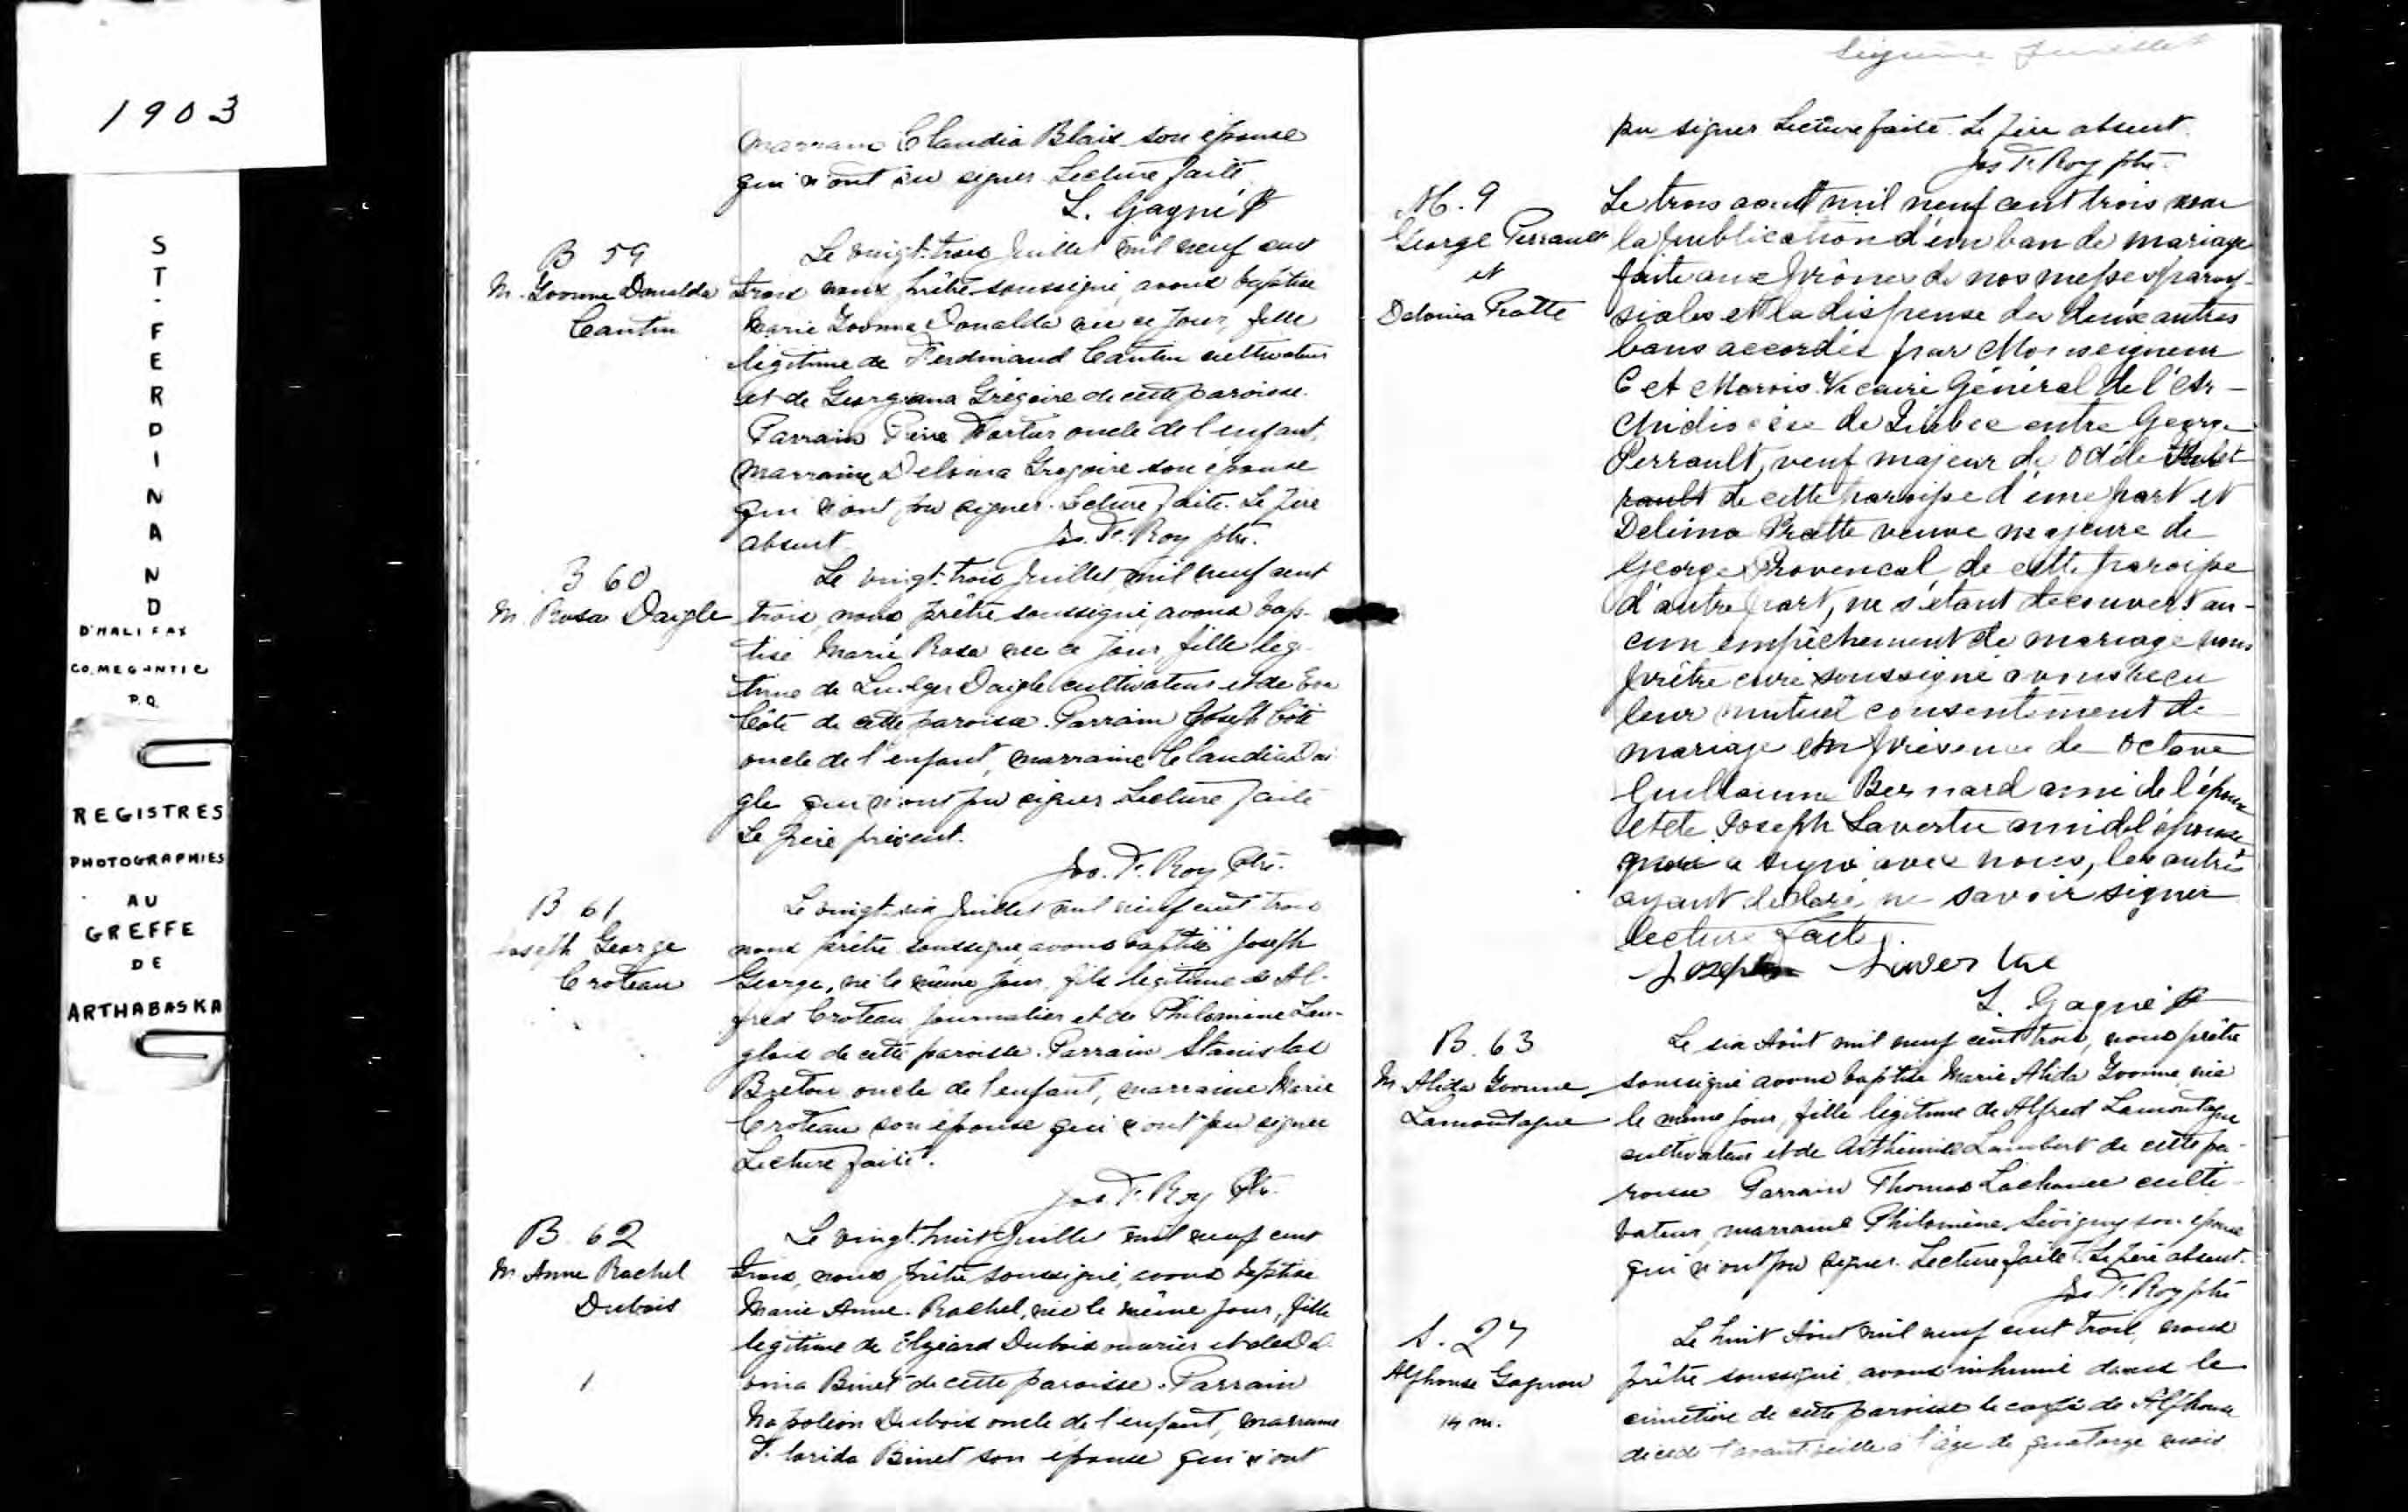 1903
ST. FERDINAND
D'HALIFAX
CO. MEGANTIC
P.Q.
REGISTRES
PHOTOGRAPHIES
AU
GREFFE
DE
ARTHABASKA
marraine Claudia Blais son épouse
qui n'ont su signer Lecture faite.
L. Gagné Ptr
B 59
M. Yvonne Donalda
Cantin
Le vingt-trois Juillet mil neuf cent
trois nous prêtre soussigné, avons baptisé
Marie Yvonne Donalda née ce jour, fille
légitime de Ferdinand Cantin cultivateur
et de Georgiana Grégoire de cette paroisse.
Parrain Pierre Fortier oncle de l'enfant,
marraine Delvina Gregoire son épouse
qui n'ont pu signer. Lecture faite. Le père
absent. Jos. F. Roy ptre.
B 60
M. Rosa Daigle
Le vingt-trois Juillet, mil neuf cent
trois, nous prêtre soussigné, avons bap-
tisé Marie Rosa née ce jour, fille légi-
time de Ludger Daigle cultivateur et de Eva
Côté de cette paroisse. Parrain Joseph Côté
oncle de l'enfant, marraine Claudia Dai
gle qui n'ont pu signer Lecture faite
Le père présent.
Jos. F. Roy Ptre.
B 61
Joseph George
Croteau
Le vingt-six Juillet mil neuf cent trois
nous prêtre soussigné, avons baptisé Joseph
George, né le même jour, fils légitime de Al-
fred Croteau journalier et de Philomène Lan-
glois de cette paroisse. Parrain Stanislas
Breton oncle de l'enfant, marraine Marie
Croteau son épouse qui n'ont pu signer
Lecture faite.
Jos. F. Roy Ptr.
B. 62
M Anne Rachel
Dubois
Le vingt-huit Juillet mil neuf cent
trois, nous prêtre soussigné, avons baptisé
Marie Anne-Rachel, née le même jour, fille
légitime de Elzéard Dubois ouvrier et de Del
vina Binet de cette paroisse. Parrain
Napoléon Dubois oncle de l'enfant, marraine
Florida Binet son épouse qui n'ont
Juillet
pu signer Lecture faite. Le père absent.
Jos F. Roy ptre.
M. 9
George Perrault
et
Delvina Pratte
Le trois aout mil neuf cent trois vu
la publication d'un ban de mariage
faite aux prônes de nos messes parois-
siales et la dispense des deux autres
bans accordée par Monseigneur
C et Marois Vicaire Général de l'Ar-
chidiocèse de Québec entre George
Perrault, veuf majeur de Odile
rault de cette paroisse d'une part et
Delima Pratte veuve majeure de
George Provencal de cette paroisse
d'autre part, ne s'étant découvert au-
cun empêchement de mariage nous
prêtre curé soussigné avons reçu
leur mutuel consentement de
mariage en présence de Octave
Guillaume Bernard ami de l'époux
et de Joseph Lavertu ami de l'épouse
qui a signé avec nous, les autres
ayant déclaré ne savoir signer
lecture faite.
Joseph Laver tue
L. Gagné Ptr
B. 63
M Alida Yvonne
Lamontagne
Le six Août mil neuf cent trois, nous prêtre
soussigné avons baptisé Marie Alida Yvonne née
le même jour, fille légitime de Alfred Lamontagne
cultivateur et de Arthémise Lambert de cette pa-
roisse Parrain Thomas Lachance culti-
vateur, marraine Philomène Sévigny son épouse
qui n'ont pu signer. Lecture faite. Le père absent.
Jos F. Roy ptre
S. 27
Alphonse Gagnon
14 m.
Le huit Août mil neuf cent trois, nous
prêtre soussigné avons inhumé dans le
cimetière de cette paroisse le corps de Alphonse
décédé l'avant veille à l'âge de quatorze mois